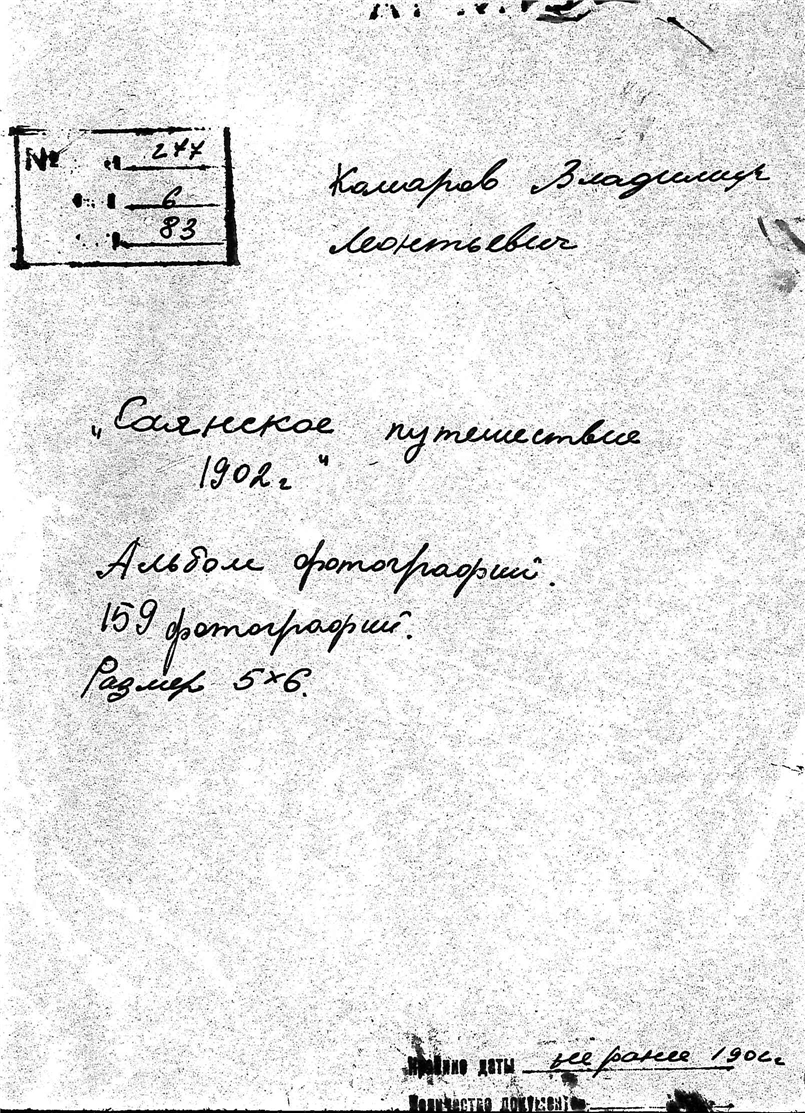 № 277
6
83
Комаров Владимир
Леонтьевич
„Саянское путешествие
1902г"
Альбом фотографий.
159 фотографий.
Размер 5×6.
Крайние даты не ранее 1902г
Количество документов